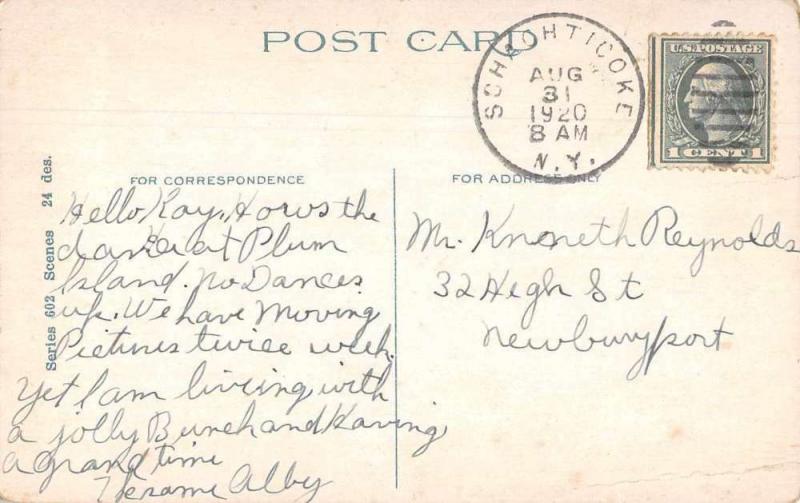 POST CARD
SCHAGHTICOKE
AUG
31
1920
8 AM
N.Y.
U.S. POSTAGE
1 CENT 1
Series 602 Scenes 24 des.
FOR CORRESPONDENCE
Hello Kay, Hows the
dance at Plum
Island. no Dances
up. We have Moving
Pictures twice week.
Yet I am living with
a jolly Bunch and Having
a grand time
Alby
FOR ADDRESS ONLY
Mr. Knenneth Reynolds
32 High St
Newburyport